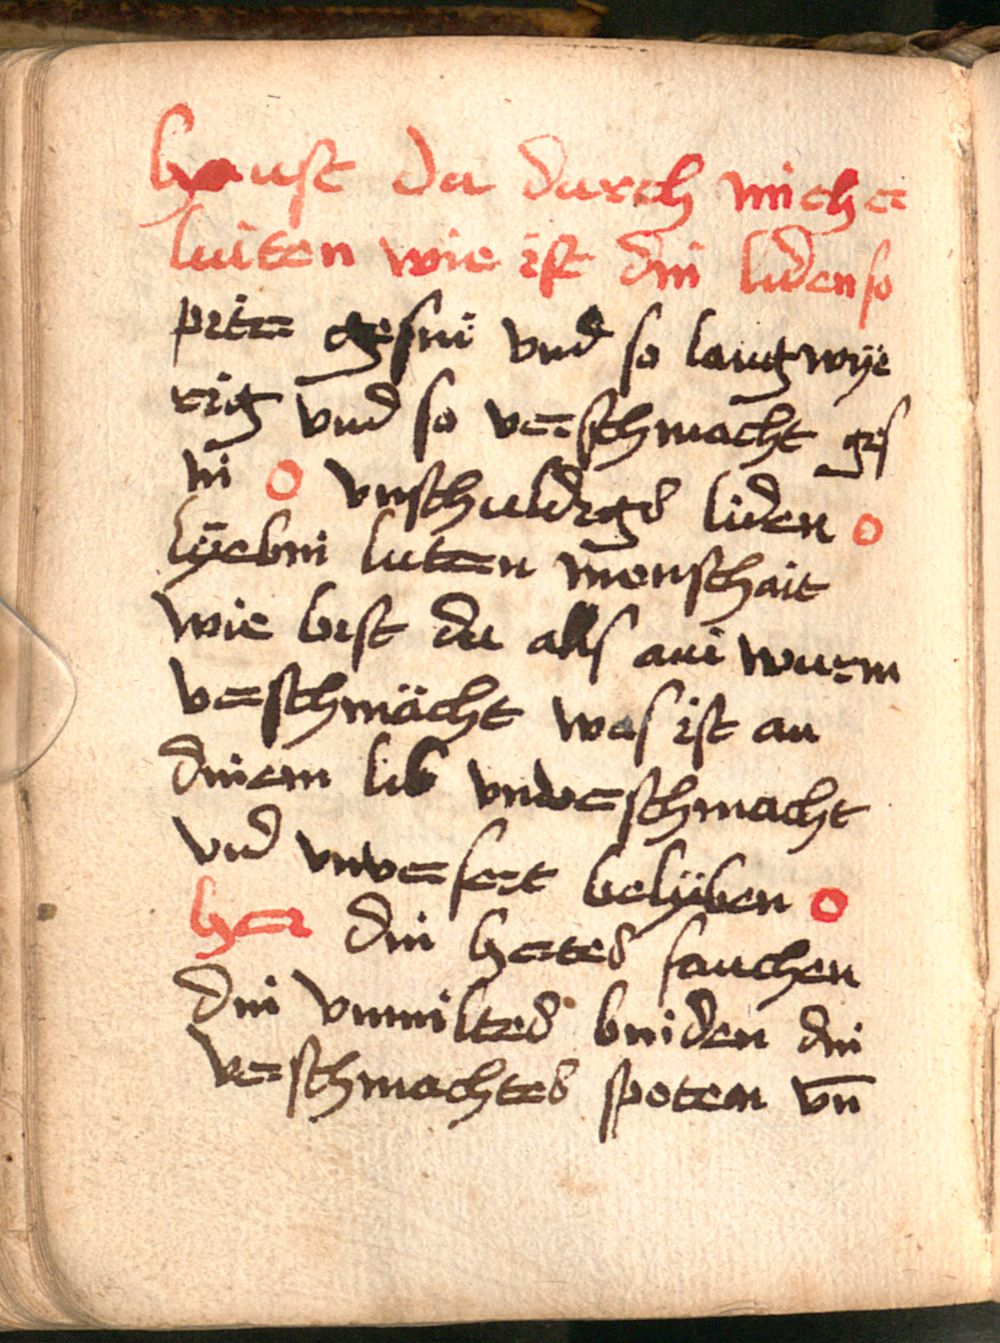 haust du durch mich er
luiten wie ist din liden so
piten gesin vnd so langwije
rig vnd so verschmacht ges
in O vnschuldigs liden O
lÿebin luten menschait
wie bist du alls ain wurm
verschmächt was ist an
dinem lib vnverschmacht
vnd vnversert belÿben O
her din hertes fauchen
din vnmiltes binden din
verschmachtes spoten vn̄